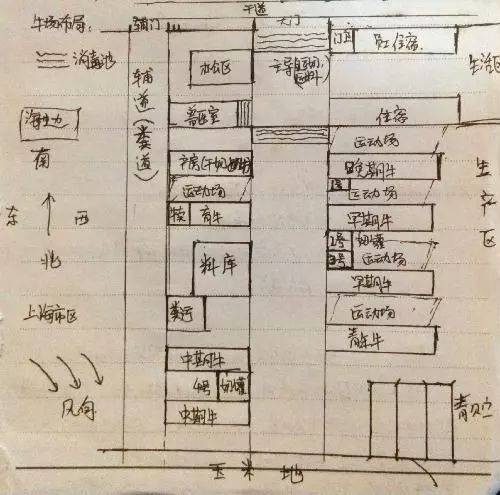 干道
牛场布局:
辅门
大门
消毒池
办公区
门卫
员工住宿
生活区
辅道(粪道)
兽医室
住宿
运动场
南
东
西
北
产房(干奶
运动场
犊
育牛
晚期牛
运动场
早期牛
生产区
1号
奶罐
3号
运动场
料库
早期牛
上海市区
粪污
运动场
青年牛
中期牛
4号
奶罐
中期牛
风向
青贮
玉米地